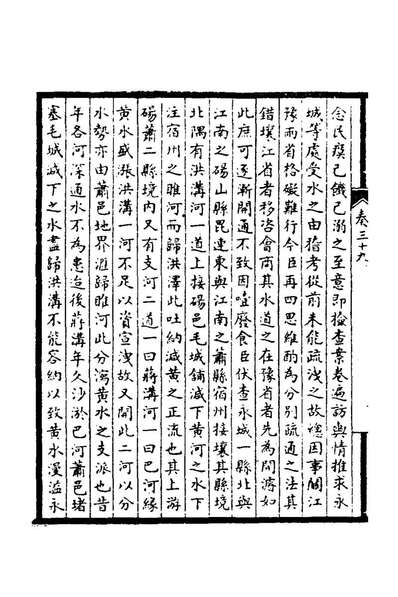 念民瘼己饑己溺之至意即檢查案卷遍訪輿情推求永
城等處受水之由指考從前未能疏洩之故總因事關江
豫兩省格礙難行今臣再四思維酌為分别疏通之法其
錯壤江省者移咨會商其水道之在豫省者先為開濬如
此庶可逐漸開通不致因噎廢食臣伏查永城一縣北與
江南之碭山縣毘連東與江南之蕭縣宿州接壤其縣境
北隅有洪溝河一道上接碭邑毛城鋪減下黄河之水下
注宿州之睢河而歸洪澤此吐納減黄之正流也其上游
碭蕭二縣境内又有支河二道一曰蔣溝河一曰巴河緣
黄水盛漲洪溝一河不足以資宣洩故又開此二河以分
水勢亦由蕭邑地界滙歸睢河此分瀉黄水之支派也昔
年各河深通水不為患迨後蔣溝年久沙淤巴河蕭邑堵
塞毛城減下之水盡歸洪溝不能容納以致黄水漫溢永
卷三十九